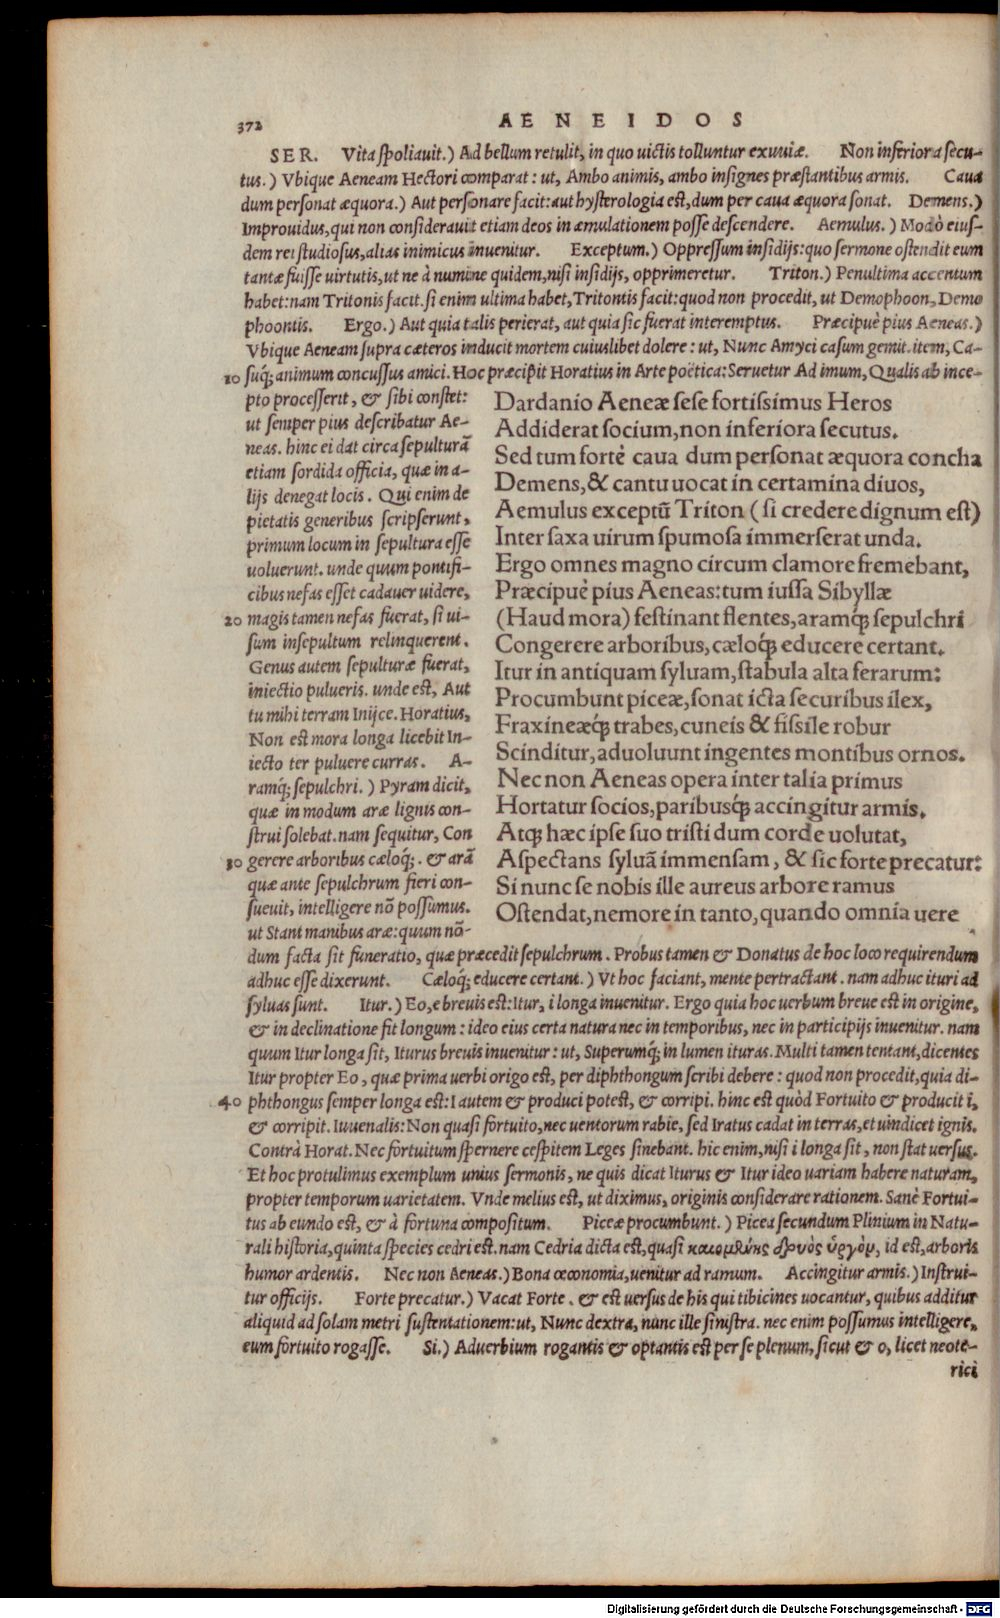 372
AENEIDOS
SER. Vita spoliauit.) Ad bellum retulit, in quo uictis tolluntur exuuiæ. Non inferiora secu-
tus.) Vbique Aeneam Hectori comparat: ut, Ambo animis, ambo insignes præstantibus armis. Caua
dum personat æquora.) Aut personare facit: aut hysterologia est, dum per caua æquora sonat. Demens.)
Improuidus, qui non considerauit etiam deos in æmulationem posse descendere. Aemulus.) Modò eius-
dem rei studiosus, aliàs inimicus inuenitur. Exceptum.) Oppressum insidijs: quo sermone ostendit eum
tantæ fuisse uirtutis, ut ne à numine quidem, nisi insidijs, opprimeretur. Triton.) Penultima accentum
habet: nam Tritonis facit. si enim ultima habet, Tritontis facit: quod non procedit, ut Demophoon, Demo
phoontis. Ergo.) Aut quia talis perierat, aut quia sic fuerat interemptus. Præcipuè pius Aeneas.)
Vbique Aeneam supra cæteros inducit mortem cuiuslibet dolere: ut, Nunc Amyci casum gemit. item, Ca-
10 suq́; animum concussus amici. Hoc præcipit Horatius in Arte poëtica: Seruetur Ad imum, Qualis ab ince-
pto processerit, & sibi constet:
ut semper pius describatur Ae-
neas. hinc ei dat circa sepulturā
etiam sordida officia, quæ in a-
lijs denegat locis. Qui enim de
pietatis generibus scripserunt,
primum locum in sepultura esse
uoluerunt. unde quum pontifi-
cibus nefas esset cadauer uidere,
20 magis tamen nefas fuerat, si ui-
sum insepultum relinquerent.
Genus autem sepulturæ fuerat,
iniectio pulueris. unde est, Aut
tu mihi terram Inijce. Horatius,
Non est mora longa licebit In-
iecto ter puluere curras. A-
ramq́; sepulchri.) Pyram dicit,
quæ in modum aræ lignis con-
strui solebat. nam sequitur, Con
30 gerere arboribus cæloq́;. & arā
quæ ante sepulchrum fieri con-
sueuit, intelligere nō possumus.
ut Stant manibus aræ: quum nō-
Dardanio Aeneæ sese fortissimus Heros
Addiderat socium, non inferiora secutus.
Sed tum fortè caua dum personat æquora concha
Demens, & cantu uocat in certamina diuos,
Aemulus exceptū Triton (si credere dignum est)
Inter saxa uirum spumosa immerserat unda.
Ergo omnes magno circum clamore fremebant,
Præcipuè pius Aeneas: tum iussa Sibyllæ
(Haud mora) festinant flentes, aramq́; sepulchri
Congerere arboribus, cæloq́; educere certant.
Itur in antiquam syluam, stabula alta ferarum:
Procumbunt piceæ, sonat icta securibus ilex,
Fraxineæq́; trabes, cuneis & fissile robur
Scinditur, aduoluunt ingentes montibus ornos.
Nec non Aeneas opera inter talia primus
Hortatur socios, paribusq́; accingitur armis.
Atq; hæc ipse suo tristi dum corde uolutat,
Aspectans syluā immensam, & sic forte precatur:
Si nunc se nobis ille aureus arbore ramus
Ostendat, nemore in tanto, quando omnia uere
dum facta sit funeratio, quæ præcedit sepulchrum. Probus tamen & Donatus de hoc loco requirendum
adhuc esse dixerunt. Cæloq́; educere certant.) Vt hoc faciant, mente pertractant. nam adhuc ituri ad
syluas sunt. Itur.) Eo, e breuis est: Itur, i longa inuenitur. Ergo quia hoc uerbum breue est in origine,
& in declinatione fit longum: ideo eius certa natura nec in temporibus, nec in participijs inuenitur. nam
quum Itur longa sit, Iturus breuis inuenitur: ut, Superumq́; in lumen ituras. Multi tamen tentant, dicentes
Itur propter Eo, quæ prima uerbi origo est, per diphthongum scribi debere: quod non procedit, quia di-
40 phthongus semper longa est: I autem & produci potest, & corripi. hinc est quòd Fortuito & producit i,
& corripit. Iuuenalis: Non quasi fortuito, nec uentorum rabie, sed Iratus cadat in terras, et uindicet ignis.
Contrà Horat. Nec fortuitum spernere cespitem Leges sinebant. hic enim, nisi i longa sit, non stat uersus.
Et hoc protulimus exemplum unius sermonis, ne quis dicat Iturus & Itur ideo uariam habere naturam,
propter temporum uarietatem. Vnde melius est, ut diximus, originis considerare rationem. Sanè Fortui-
tus ab eundo est, & à fortuna compositum. Piceæ procumbunt.) Picea secundum Plinium in Natu-
rali historia, quinta species cedri est. nam Cedria dicta est, quasi καιομένης δρυὸς ὑγρὸν, id est, arboris
humor ardentis. Nec non Aeneas.) Bona œconomia, uenitur ad ramum. Accingitur armis.) Instrui-
tur officijs. Forte precatur.) Vacat Forte. & est uersus de his qui tibicines uocantur, quibus additur
aliquid ad solam metri sustentationem: ut, Nunc dextra, nunc ille sinistra. nec enim possumus intelligere,
eum fortuito rogasse. Si.) Aduerbium rogantis & optantis est per se plenum, sicut & o, licet neote-
rici
Digitalisierung gefördert durch die Deutsche Forschungsgemeinschaft - DFG